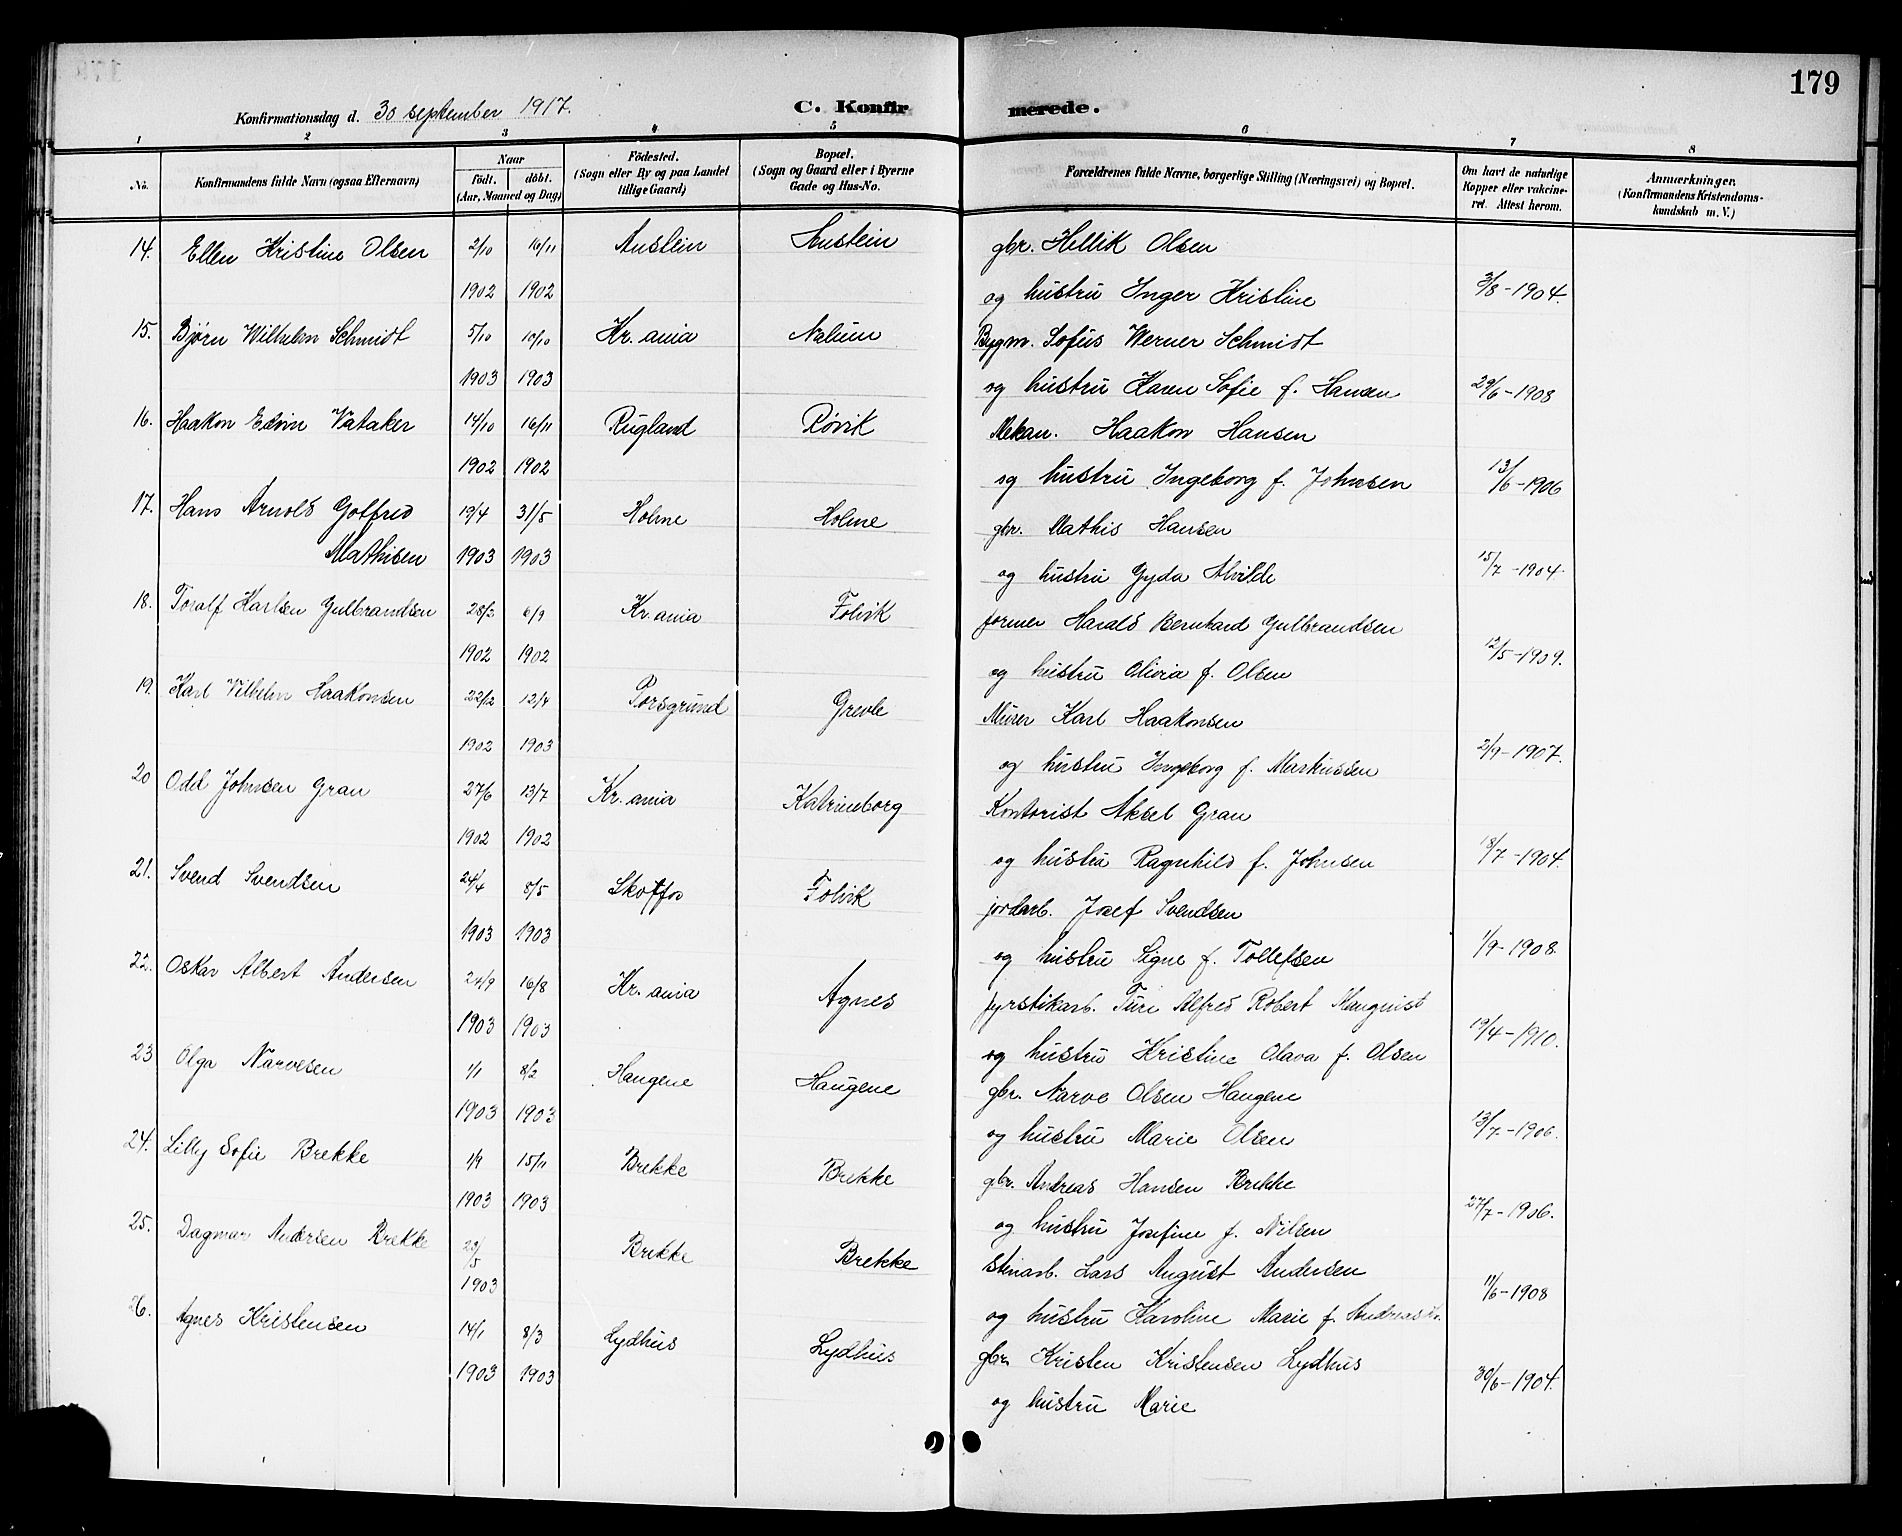 179
Konfirmationsdag d. 30 september 1917.
C. Konfirmerede.
1 2 3 4 5 6 7 8
No. Konfirmandens fulde Navn (ogsaa Efternavn)
Naar
födt. döbt.
(Aar, Maaned og Dag)
Födested.
(Sogn eller By og paa Landet
tillige Gaard)
Bopæl.
(Sogn og Gaard eller i Byerne
Gade og Hus-No.
Forældrenes fulde Navne, borgerlige Stilling (Næringsvei) og Bopæl.
Om havt de naturlige
Kopper eller vakcine-
ret. Attest herom.
Anmærkninger.
(Konfirmandens Kristendoms-
kundskab m. V.)
14. Ellen Kristine Olsen 2/10 16/11 Austein Austein gbr. Hellik Olsen
1902 1902 og hustru Inger Kristine 3/8-1904.
15. Bjørn Wilhelm Schmidt 5/10 10/10 Kr.ania Nalum Bygm. Sofus Werner Schmidt
1903 1903 og hustru Karen Sofie f. Hansen 29/6-1908
16. Haakon Edvin Vataker 14/10 16/11 Rugland Røvik Mekan. Haakon Hansen
1902 1902 og hustru Ingeborg f. Johnsen 13/6-1906
17. Hans Arnold Gotfred 19/4 31/5 Holme Holme gbr. Mathis Hansen
Mathisen 1903 1903 og hustru Gyda Alvilde 15/7-1904.
18. Toralf Karlsen Gulbrandsen 28/2 6/9 Kr.ania Tolvik former Harald Bernhard Gulbrandsen
1902 1902 og hustru Olivia f. Olsen 12/5-1909.
19. Karl Vilhelm Haakonsen 22/12 12/4 Porsgrund Grevle Murer Karl Haakonsen
1902 1903 og hustru Ingeborg f. Markussen 2/9-1907.
20 Odd Johnsen Gran 27/6 13/7 Kr.ania Katrineborg Kontorist Aksel Gran
1902 1902 og hustru Ragnhild f. Johnsen 18/7-1904.
21. Svend Svendsen 24/4 8/5 Skotfos Tolvik jordarb. Josef Svendsen
1903 1903 og hustru Signe f. Tollefsen 1/9-1908.
22. Oskar Albert Andersen 24/9 16/8 Kr.ania Agnes fyrstikarb. Ture Alfred Robert
1903 1903 og hustru Kristine Olava f. Olsen 19/4-1910.
23 Olga Narvesen 1/1 8/2 Haugene Haugene gbr. Narve Olsen Haugene
1903 1903 og hustru Marie Olsen 13/7-1906.
24. Lilly Sofie Brekke 1/9 15/11 Brekke Brekke gbr. Andreas Hansen Brekke
1903 1903 og hustru Josefine f. Nilsen 27/7-1906.
25. Dagmar Andersen Brekke 23/5 Brekke Brekke Stenarb. Lars August Andersen
1903 og hustru Karoline Marie f. 11/6-1908
26. Agnes Kristensen 14/1 8/3 Lydhus Lydhus gbr. Kristen Kristensen Lydhus
1903 1903 og hustru Marie 30/6-1904.